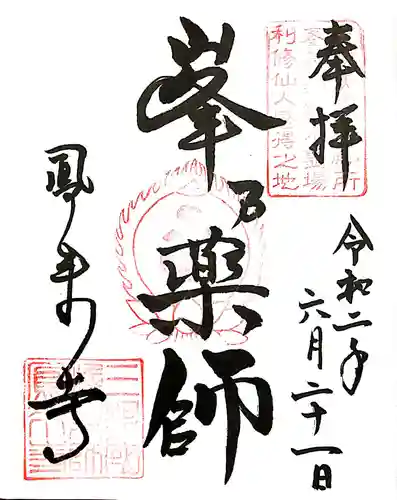 奉拝
令和二年
六月二十一日
峯乃薬師
鳳来寺
利修仙人護得之地